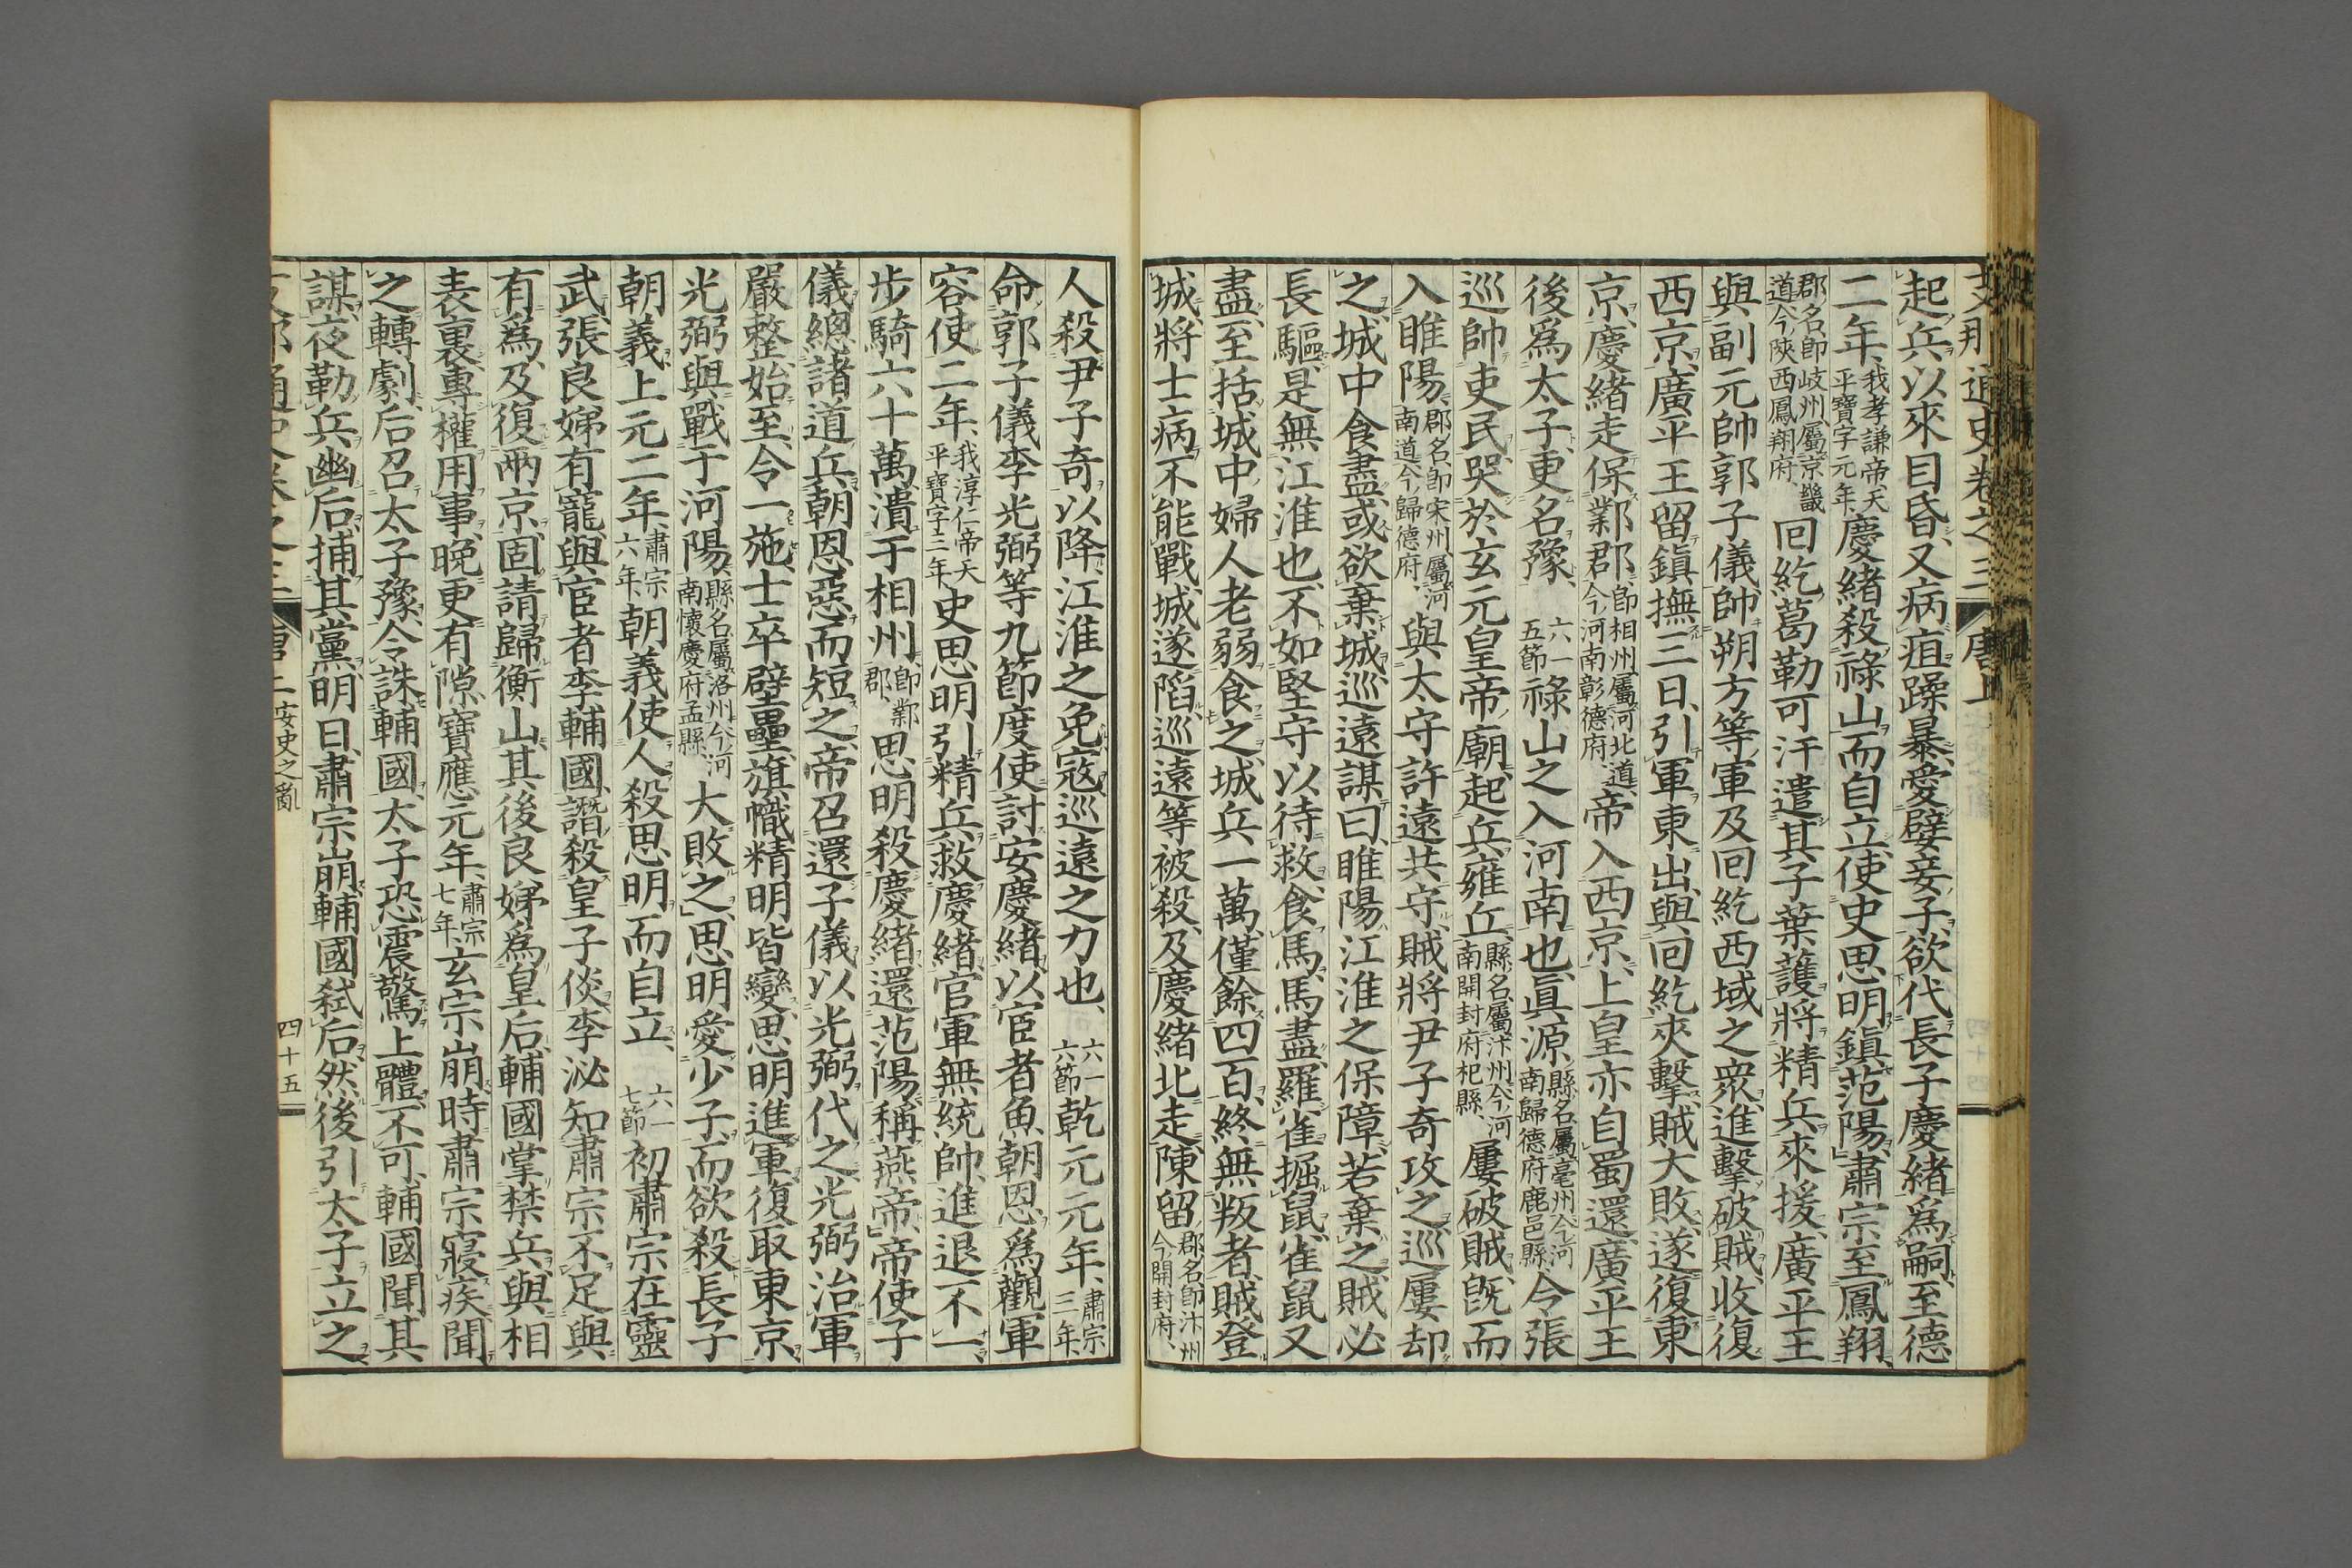 起兵以來目昏、又病疽躁暴、愛嬖妾子、欲代長子慶緒爲嗣、至德
二年、我孝謙帝、天平寶字元年、慶緒殺祿山而自立、使史思明鎭范陽、肅宗至鳳翔、
郡名、卽岐州、屬京畿道、今陝西鳳翔府、回紇葛勒可汗遣其子葉護將精兵來援、廣平王
與副元帥郭子儀、帥朔方等軍及回紇西域之衆、進擊破賊、收復
西京、廣平王留鎭撫三日、引軍東出、與回紇夾擊、賊大敗、遂復東
京、慶緒走保鄴郡、卽相州、屬河北道、今河南彰德府、帝入西京、上皇亦自蜀還、廣平王
後爲太子、更名豫、六一五節祿山之入河南也、眞源縣名、屬亳州、今河南歸德府鹿邑縣、令張
巡帥吏民、哭於玄元皇帝廟、起兵、雍丘、縣名、屬汴州、今河南開封府杞縣、屢破賊、旣而
入睢陽、郡名、卽宋州、屬河南道、今歸德府、與太守許遠共守、賊將尹子奇攻之、巡屢却
之、城中食盡、或欲棄城、巡遠謀曰、睢陽江淮之保障、若棄之、賊必
長驅、是無江淮也、不如堅守以待救、食馬、馬盡、羅雀掘鼠、雀鼠又
盡、至括城中婦人老弱食之、城兵一萬、僅餘四百、終無叛者、賊登
城、將士病不能戰、城遂陷、巡遠等被殺、及慶緒北走、陳留郡名、卽汴州今開封府、
人殺尹子奇以降、江淮之免寇、巡遠之力也、六一六節乾元元年、肅宗三年
命郭子儀李光弼等九節度使討安慶緒、以宦者魚朝恩爲觀軍
容使、二年、我淳仁帝天平寶字三年、史思明引精兵救慶緒、官軍無統帥、進退不一、
步騎六十萬、潰于相州、卽鄴郡、思明殺慶緒、還范陽、稱燕帝、帝使子
儀總諸道兵、朝恩惡而短之、帝召還子儀、以光弼代之、光弼治軍
嚴整、始至、令一施、士卒壁壘、旗幟精明皆變、思明進軍、復取東京、
光弼與戰于河陽、縣名、屬洛州、今河南懷慶府孟縣、大敗之、思明愛少子、而欲殺長子
朝義、上元二年、肅宗六年、朝義使人殺思明而自立、六一七節初肅宗在靈
武、張良娣有寵、與宦者李輔國、譖殺皇子倓、李泌知肅宗不足與
有爲、及復兩京、固請歸衡山、其後良娣爲皇后、輔國掌禁兵、與相
表裏、專權用事、晩更有隙、寶應元年、肅宗七年、玄宗崩、時肅宗寢疾、聞
之轉劇、后召太子豫、令誅輔國、太子恐震驚上體、不可、輔國聞其
謀、夜勒兵幽后、捕其黨、明日、肅宗崩、輔國弑后、然後引太子立之
安史之亂
四十五